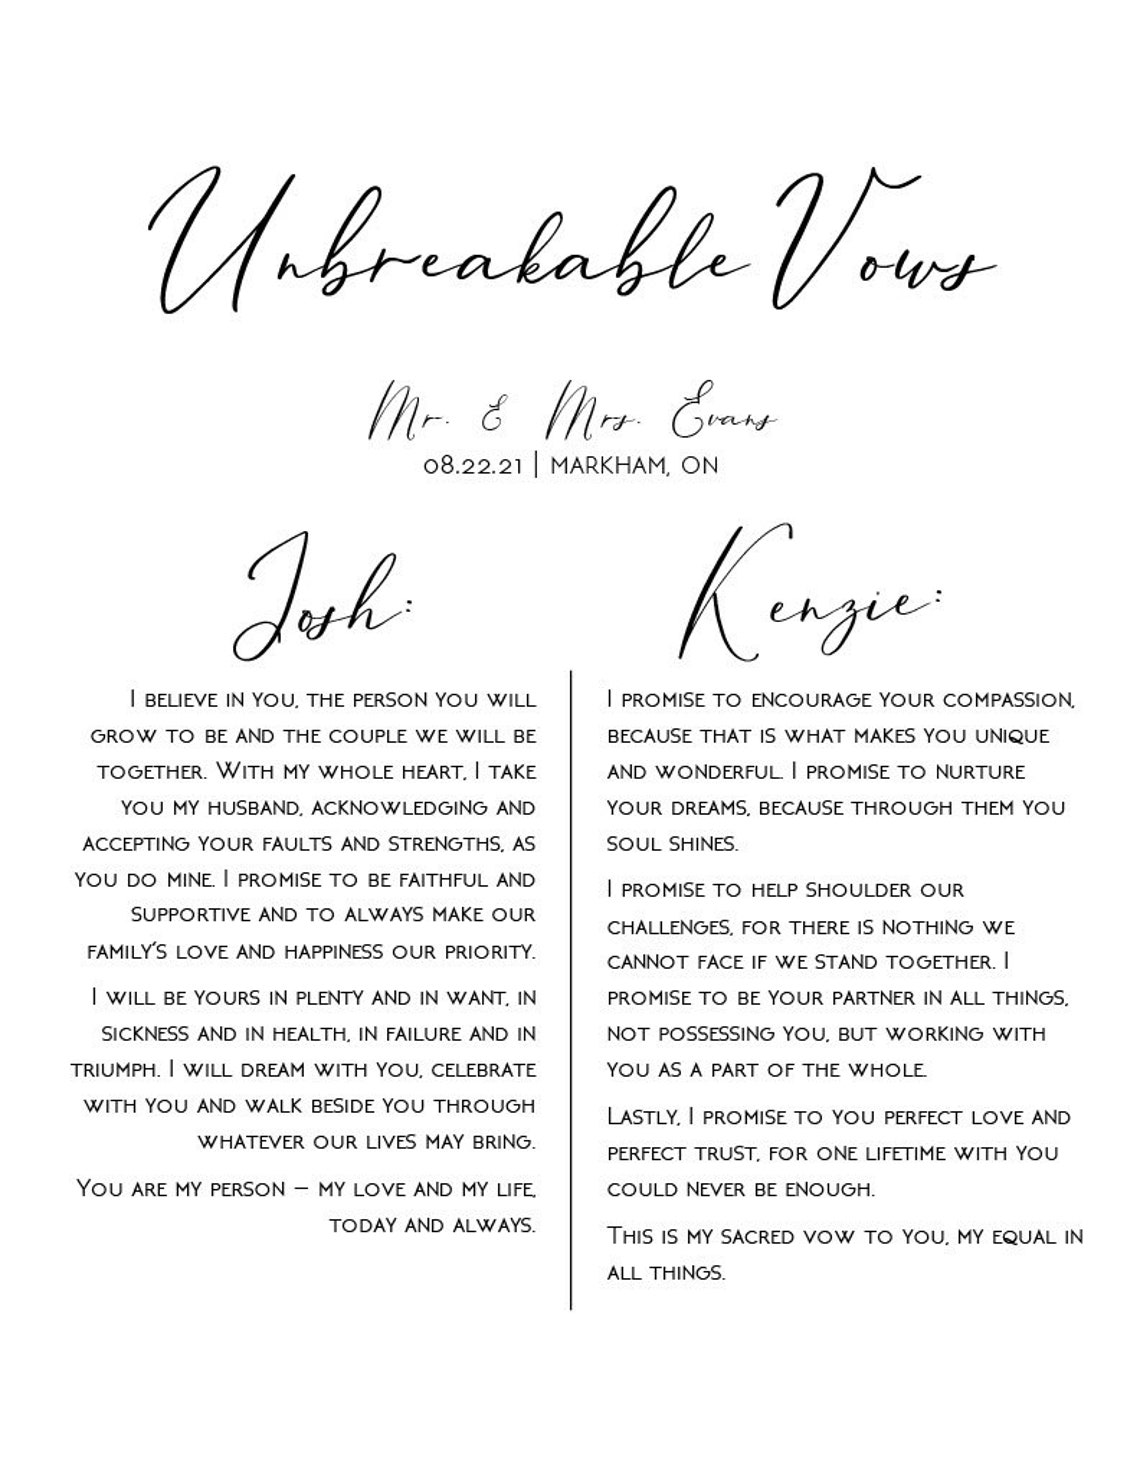 Unbreakable Vows
Mr. & Mrs. Evans
08.22.21 | MARKHAM, ON
Josh:
I BELIEVE IN YOU, THE PERSON YOU WILL
GROW TO BE AND THE COUPLE WE WILL BE
TOGETHER. WITH MY WHOLE HEART, I TAKE
YOU MY HUSBAND, ACKNOWLEDGING AND
ACCEPTING YOUR FAULTS AND STRENGTHS, AS
YOU DO MINE. I PROMISE TO BE FAITHFUL AND
SUPPORTIVE AND TO ALWAYS MAKE OUR
FAMILY'S LOVE AND HAPPINESS OUR PRIORITY.
I WILL BE YOURS IN PLENTY AND IN WANT, IN
SICKNESS AND IN HEALTH, IN FAILURE AND IN
TRIUMPH. I WILL DREAM WITH YOU, CELEBRATE
WITH YOU AND WALK BESIDE YOU THROUGH
WHATEVER OUR LIVES MAY BRING.
YOU ARE MY PERSON – MY LOVE AND MY LIFE,
TODAY AND ALWAYS.
Kenzie:
I PROMISE TO ENCOURAGE YOUR COMPASSION,
BECAUSE THAT IS WHAT MAKES YOU UNIQUE
AND WONDERFUL. I PROMISE TO NURTURE
YOUR DREAMS, BECAUSE THROUGH THEM YOU
SOUL SHINES.
I PROMISE TO HELP SHOULDER OUR
CHALLENGES, FOR THERE IS NOTHING WE
CANNOT FACE IF WE STAND TOGETHER. I
PROMISE TO BE YOUR PARTNER IN ALL THINGS,
NOT POSSESSING YOU, BUT WORKING WITH
YOU AS A PART OF THE WHOLE.
LASTLY, I PROMISE TO YOU PERFECT LOVE AND
PERFECT TRUST, FOR ONE LIFETIME WITH YOU
COULD NEVER BE ENOUGH.
THIS IS MY SACRED VOW TO YOU, MY EQUAL IN
ALL THINGS.